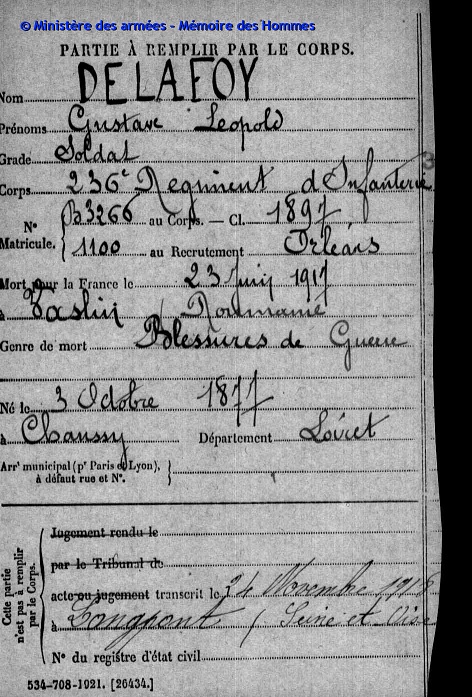 © Ministère des armées - Mémoire des Hommes
PARTIE À REMPLIR PAR LE CORPS.
Nom DELAFOY
Prénoms Gustave Leopold
Grade Soldat
Corps 236e Regiment d'Infanterie
N° Matricule. { B3266 au Corps. — Cl. 1897
1100 au Recrutement Orleans
Mort pour la France le 23 Juin 1917
à Vaslin Roumanie
Genre de mort Blessures de Guerre
Né le 3 Octobre 1877
à Chaussy Département Loiret
Arrt municipal (pr Paris et Lyon), à défaut rue et N°. }
Cette partie n'est pas à remplir par le Corps.
Jugement rendu le
par le Tribunal de
acte ou jugement transcrit le 24 Novembre 1918
à Longpont (Seine et Oise
N° du registre d'état civil
534-708-1921. [26434.]